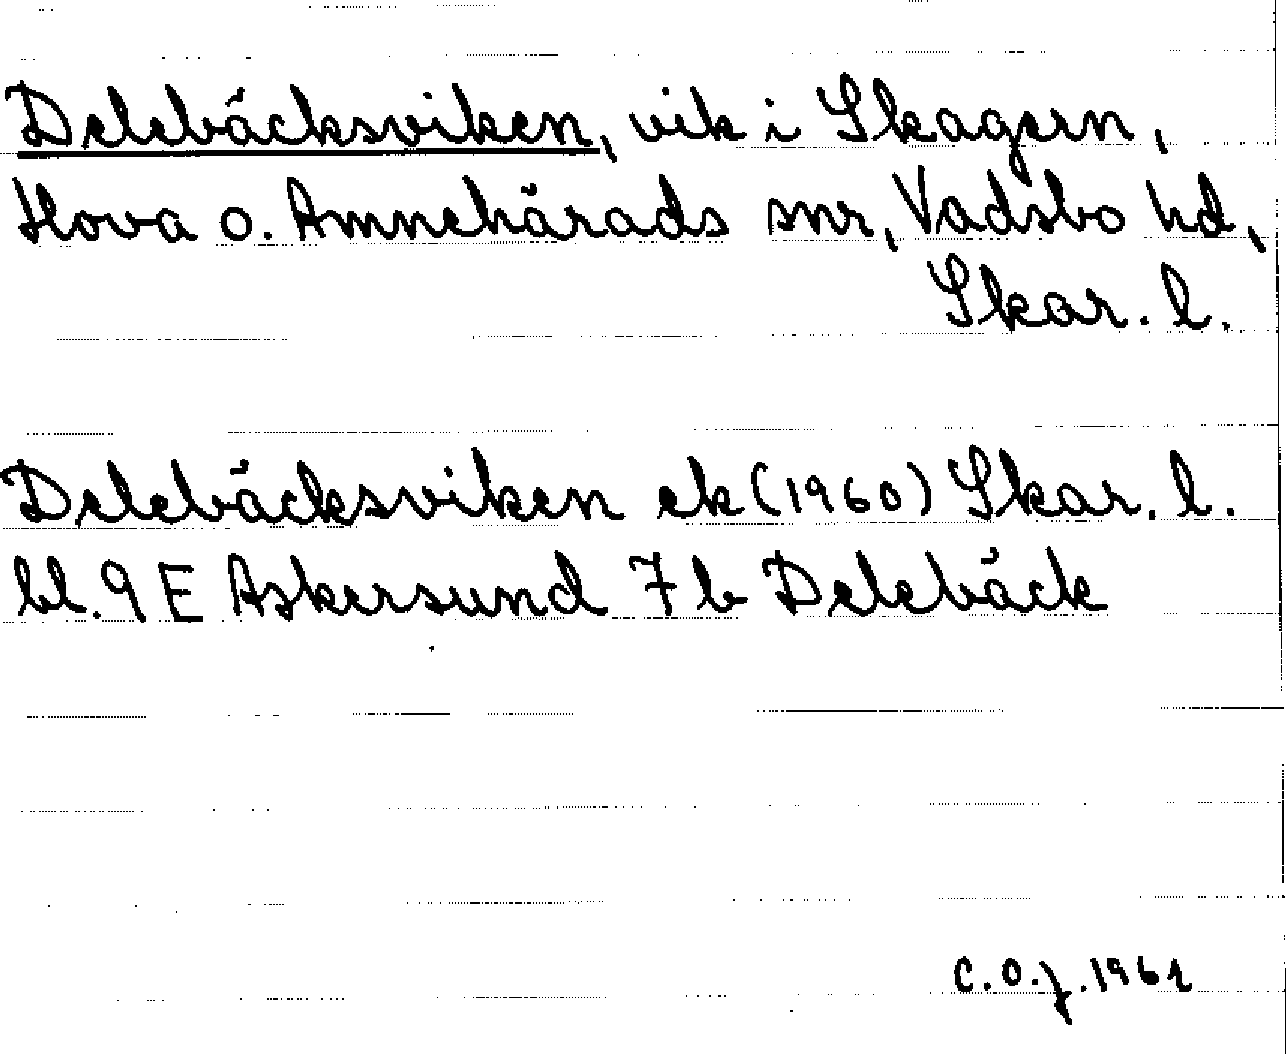 Delebäcksviken, vik i Skagern,
Hova o. Amnehärads snr, Vadsbo hd,
Skar. l.
Delebäcksviken ek (1960) Skar. l.
bl. 9 E Askersund 7 b Delebäck
C.O.J. 1961